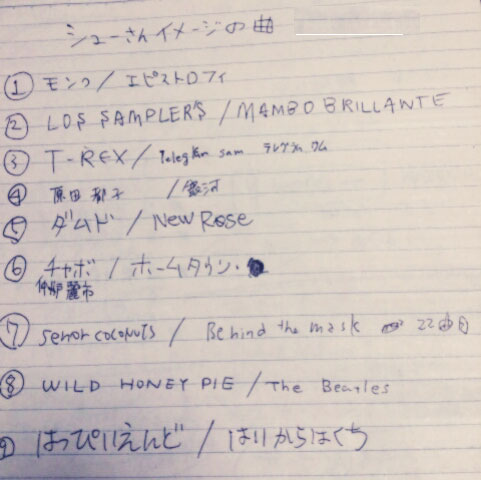 シューさんイメージの曲
① モンク / エピストロフィ
② LOS SAMPLERS / MAMBO BRILLANTE
③ T-REX / Telegram sam テレグラム サム
④ 原田郁子 / 銀河
⑤ ダムド / New Rose
⑥ チャボ / ホームタウン・
仲井戸麗市
⑦ senor coconuts / Behind the mask 22曲目
⑧ WILD HONEY PIE / The Beatles
⑨ はっぴいえんど / はいからはくち